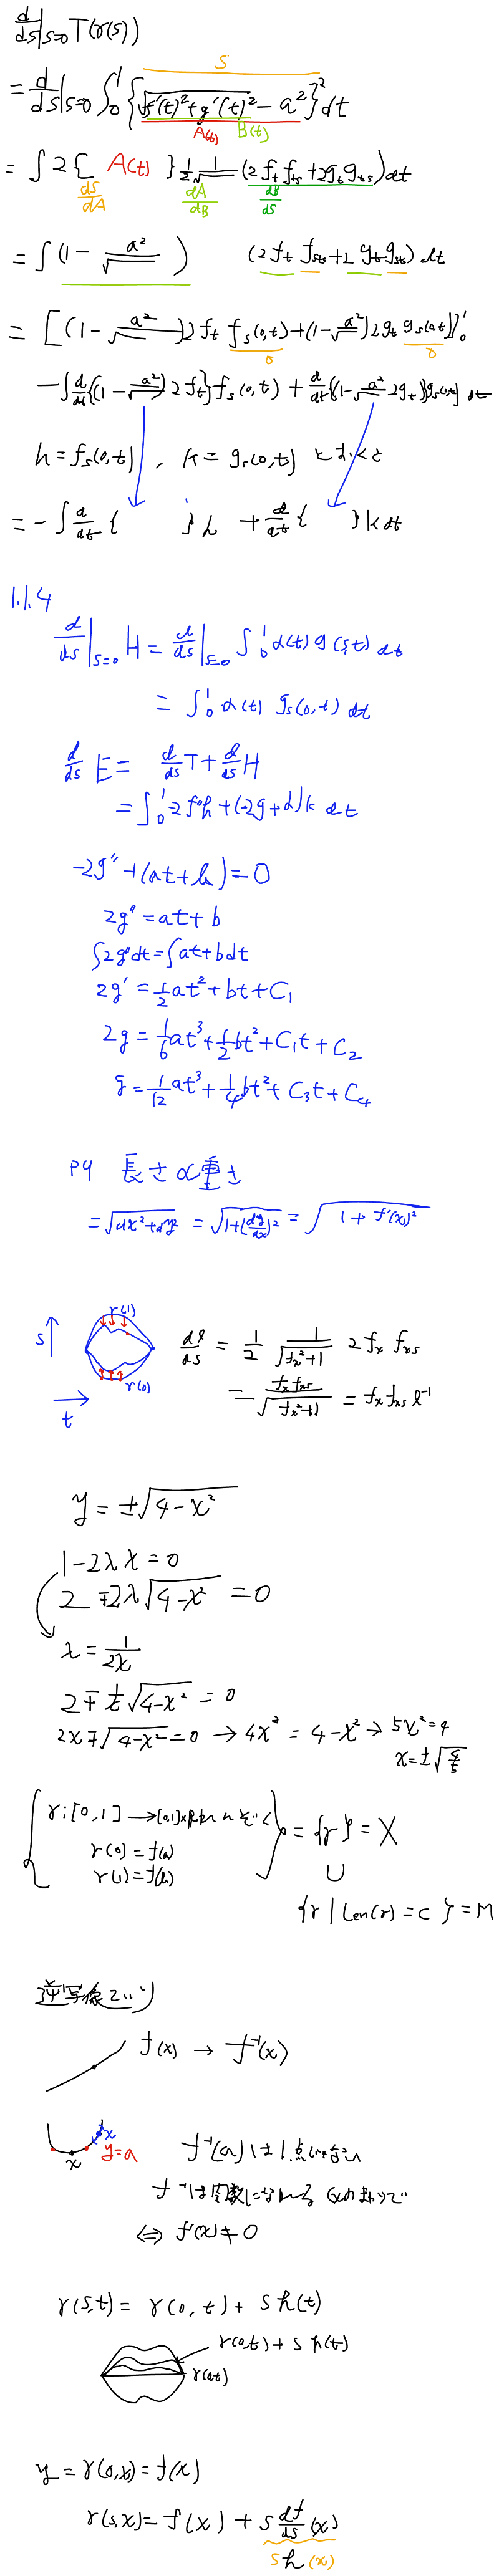 d/ds|s=0 T(γ(s))
= d/ds|s=0 ∫₀¹ {√f'(t)²+g'(t)² - a²}² dt
S
A(t) B(t)
= ∫ 2{ A(t) } 1/2 1/√ (2f_t f_ts + 2g_t g_ts) dt
dS/dA dA/dB dB/dS
= ∫ (1 - a²/√ ) (2f_t f_st + 2 g_t g_st) dt
= [(1 - a²/√ ) 2f_t f_s(0,t) + (1 - a²/√ ) 2g_t g_s(0,t)]₀¹
0 0
- ∫ d/dt{(1 - a²/√ ) 2f_t} f_s(0,t) + d/dt{(1 - a²/√ 2g_t)} g_s(0,t) dt
h = f_s(0,t) , k = g_s(0,t) とおくと
= - ∫ d/dt { } h + d/dt { } k dt
1.1.4
d/ds|s=0 H = d/ds|s=0 ∫₀¹ α(t) g(s,t) dt
= ∫₀¹ α(t) g_s(0,t) dt
d/ds E = d/ds T + d/ds H
= ∫₀¹ -2f''h + (-2g''+α)k dt
-2g'' + (at+b) = 0
2g'' = at + b
∫2g''dt = ∫at+bdt
2g' = 1/2 at² + bt + C₁
2g = 1/6 at³ + 1/2 bt² + C₁t + C₂
g = 1/12 at³ + 1/4 bt² + C₃t + C₄
P9 長さ∝重さ
= √dx²+dy² = √1+(dy/dx)² = √1 + f'(x)²
γ(1)
s
γ(0)
t
dl/ds = 1/2 1/√f_x²+1 2f_x f_xs
= f_x f_xs/√f_x²+1 = f_x f_xs l⁻¹
y = ±√4-x²
1-2λx = 0
2 ∓2λ√4-x² = 0
λ = 1/2x
2 ∓ 1/x √4-x² = 0
2x ∓ √4-x² = 0 → 4x² = 4-x² → 5x² = 4
x = ±√4/5
γ:[0,1] → [0,1]×R
γ(0) = f(a)
γ(1) = f(b)
= {γ} = X
∪
{γ | Len(γ) = c } = M
逆写像定理
f(x) → f⁻¹(x)
x
y=a
x
f⁻¹(a)は1点じゃない
f⁻¹は関数になれる (xのまわりで
⇔ f'(x) ≠ 0
γ(s,t) = γ(0,t) + s h(t)
γ(0,t) + s h(t)
γ(0,t)
y = γ(0,x) = f(x)
γ(s,x) = f(x) + s df/ds (x)
s h(x)